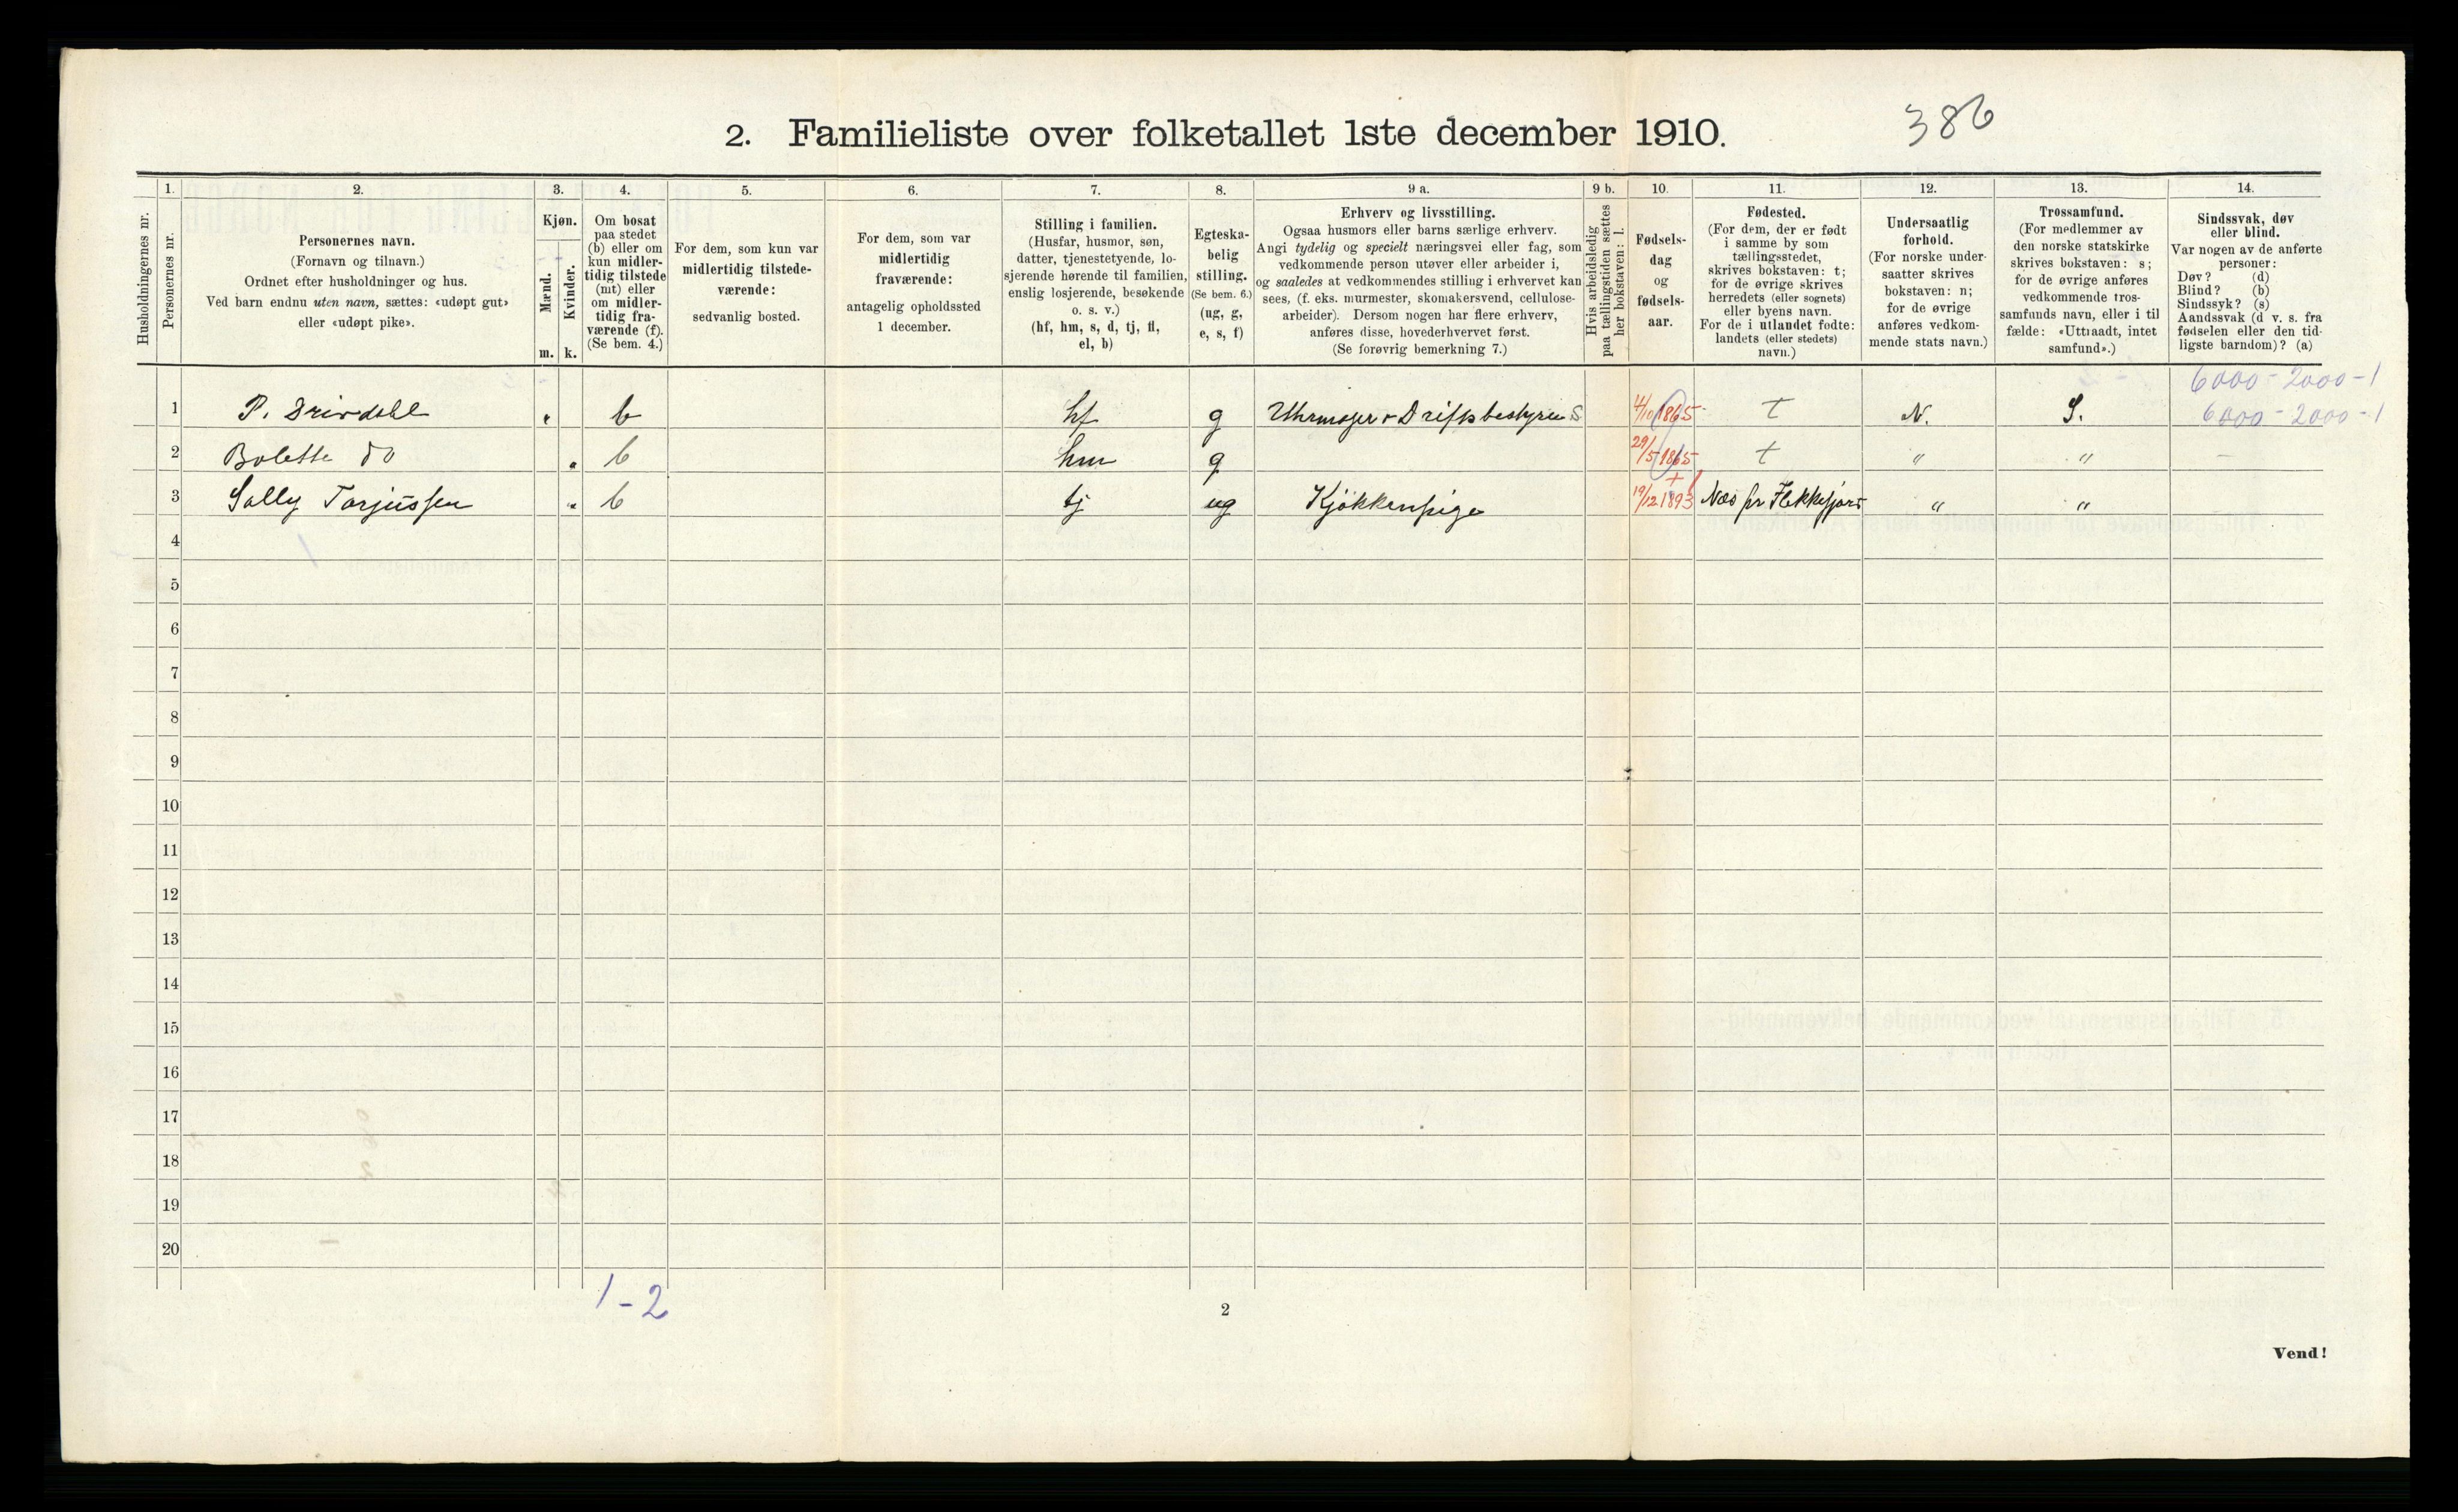 386
2. Familieliste over folketallet 1ste december 1910.
Husholdningernes nr.
1.
Personernes nr.
2.
Personernes navn.
(Fornavn og tilnavn.)
Ordnet efter husholdninger og hus.
Ved barn endnu uten navn, sættes: «udøpt gut»
eller «udøpt pike».
3.
Kjøn.
Mænd.
Kvinder.
m. k.
4.
Om bosat
paa stedet
(b) eller om
kun midler-
tidig tilstede
(mt) eller
om midler-
tidig fra-
værende (f).
(Se bem. 4.)
5.
For dem, som kun var
midlertidig tilstede-
værende:
sedvanlig bosted.
6.
For dem, som var
midlertidig
fraværende:
antagelig opholdssted
1 december.
7.
Stilling i familien.
(Husfar, husmor, søn,
datter, tjenestetyende, lo-
sjerende hørende til familien,
enslig losjerende, besøkende
o. s. v.)
(hf, hm, s, d, tj, fl,
el, b)
8.
Egteska-
belig
stilling.
(Se bem. 6.)
(ug, g,
e, s, f)
9 a.
Erhverv og livsstilling.
Ogsaa husmors eller barns særlige erhverv.
Angi tydelig og specielt næringsvei eller fag, som
vedkommende person utøver eller arbeider i,
og saaledes at vedkommendes stilling i erhvervet kan
sees, (f. eks. murmester, skomakersvend, cellulose-
arbeider). Dersom nogen har flere erhverv,
anføres disse, hovederhvervet først.
(Se forøvrig bemerkning 7.)
9 b.
Hvis arbeidsledig
paa tællingstiden sættes
her bokstaven: l.
10.
Fødsels-
dag
og
fødsels-
aar.
11.
Fødested.
(For dem, der er født
i samme by som
tællingsstedet,
skrives bokstaven: t;
for de øvrige skrives
herredets (eller sognets)
eller byens navn.
For de i utlandet fødte:
landets (eller stedets)
navn.)
12.
Undersaatlig
forhold.
(For norske under-
saatter skrives
bokstaven: n;
for de øvrige
anføres vedkom-
mende stats navn.)
13.
Trossamfund.
(For medlemmer av
den norske statskirke
skrives bokstaven: s;
for de øvrige anføres
vedkommende tros-
samfunds navn, eller i til
fælde: «Uttraadt, intet
samfund».)
14.
Sindssvak, døv
eller blind.
Var nogen av de anførte
personer:
Døv? (d)
Blind? (b)
Sindssyk? (s)
Aandssvak (d v. s. fra
fødselen eller den tid-
ligste barndom)? (a)
6000 - 2000 - 1
1 P. b hf g 4/10 1865 t N. S. 6000 - 2000 - 1
2 Bolette do b hm g 29/5 1865 t " " -
3 Sally Torjussen b tj ug Kjøkkenpige 19/12 1893 Nes pr Flekkefjord " "
4
5
6
7
8
9
10
11
12
13
14
15
16
17
18
19
20
1 - 2
2
Vend!